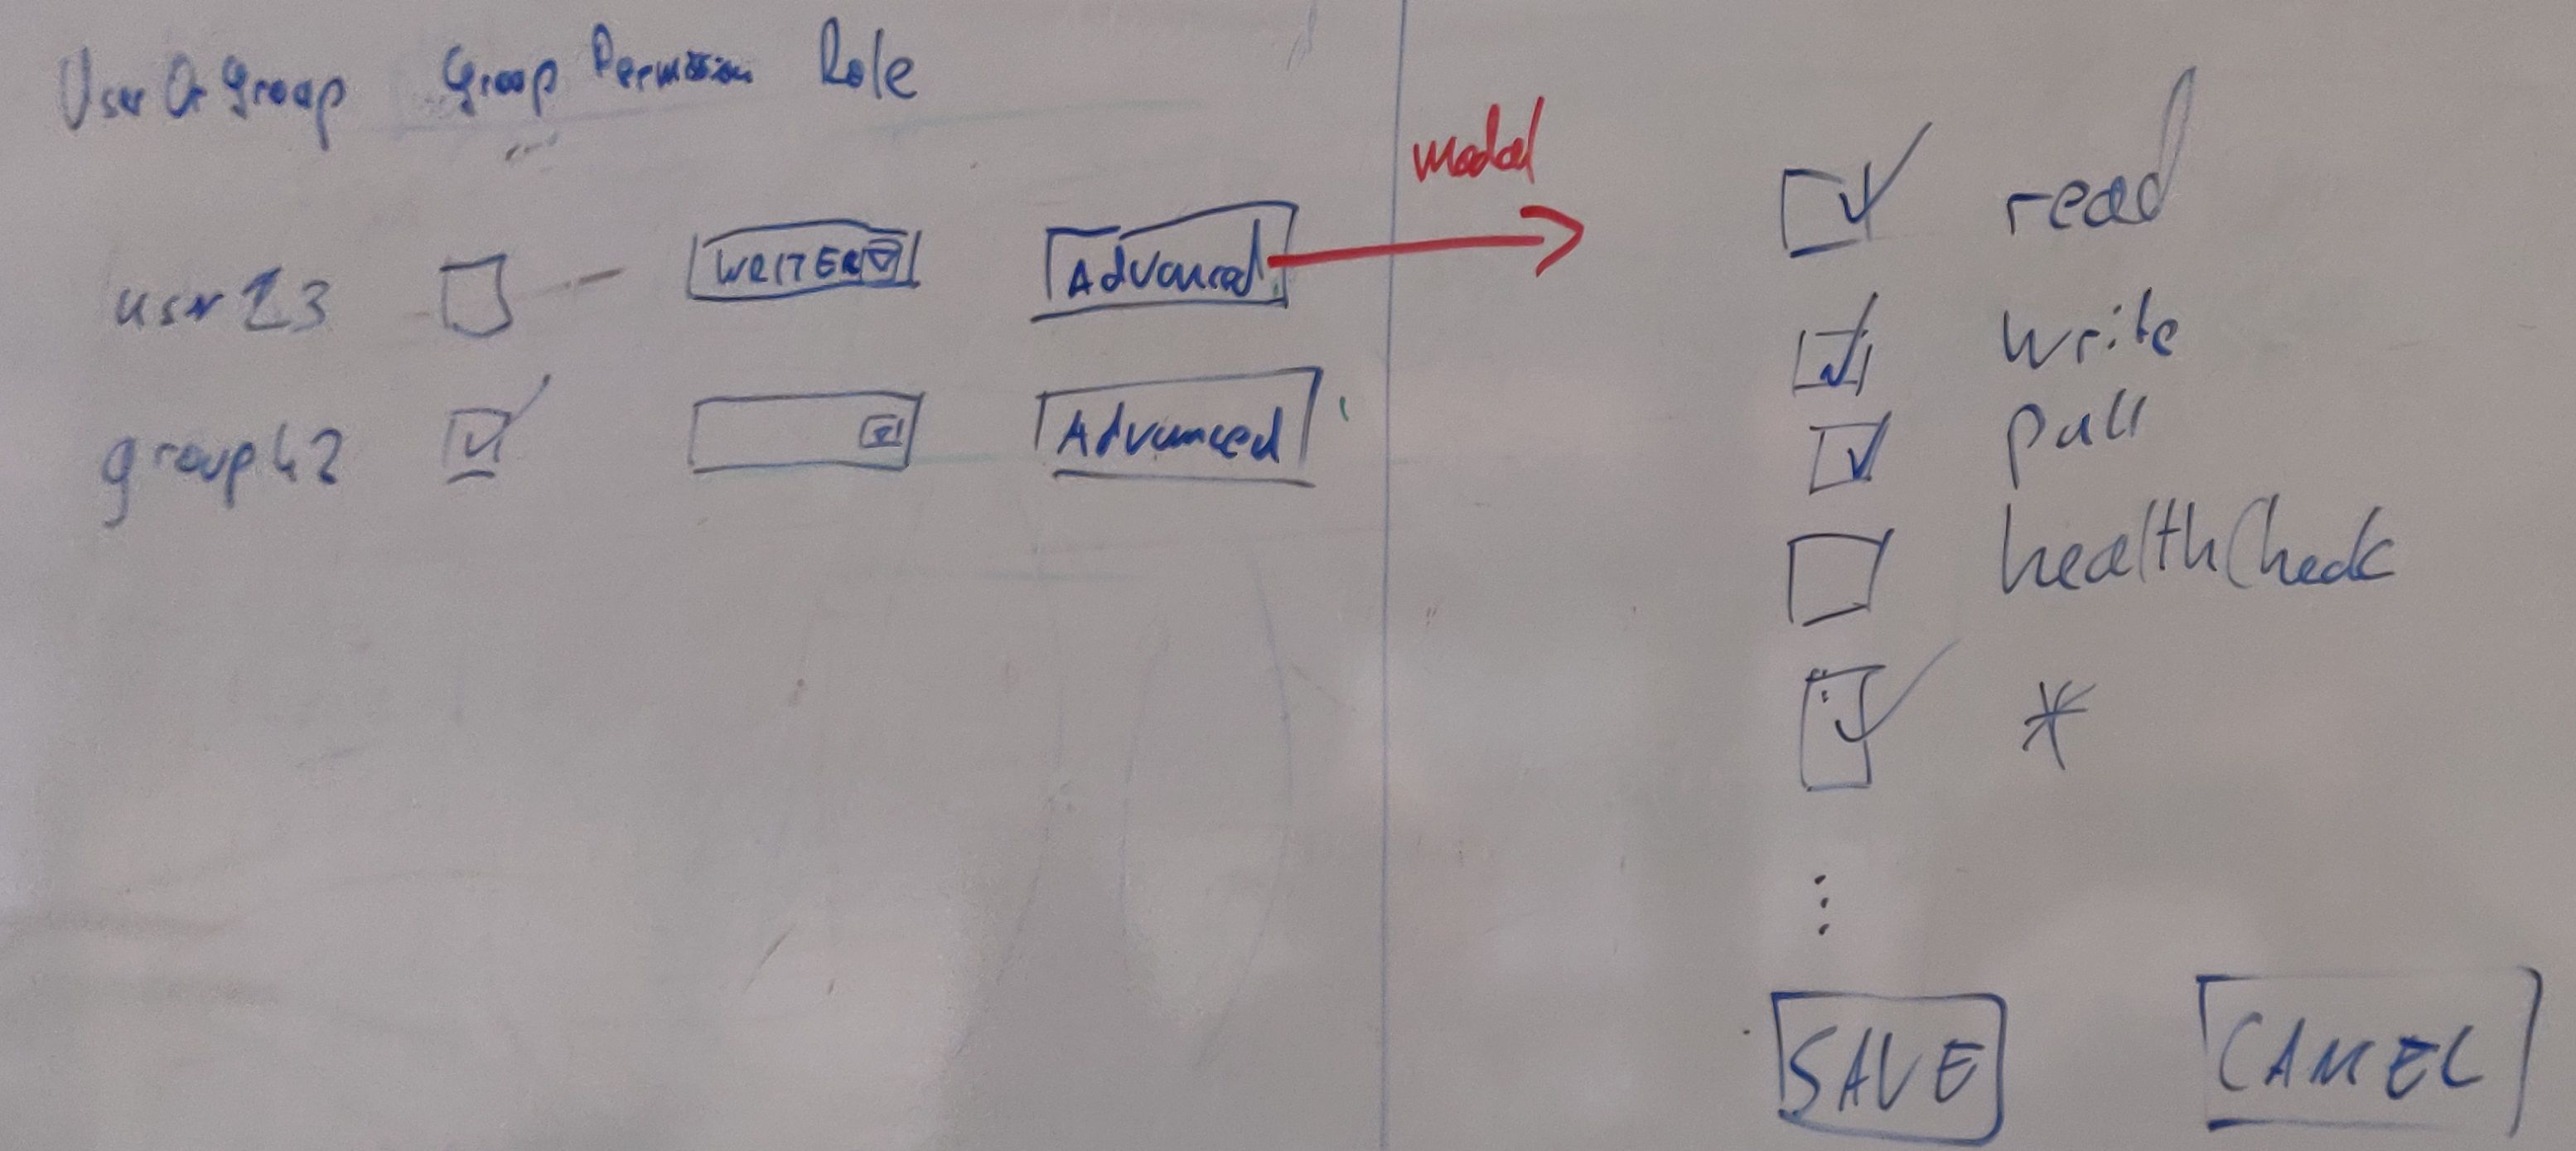 User Or Group Group Permission Role
modal
user 23 WRITER Advanced
group 42 Advanced
read
write
pull
healthCheck
*
⋮
SAVE CANCEL